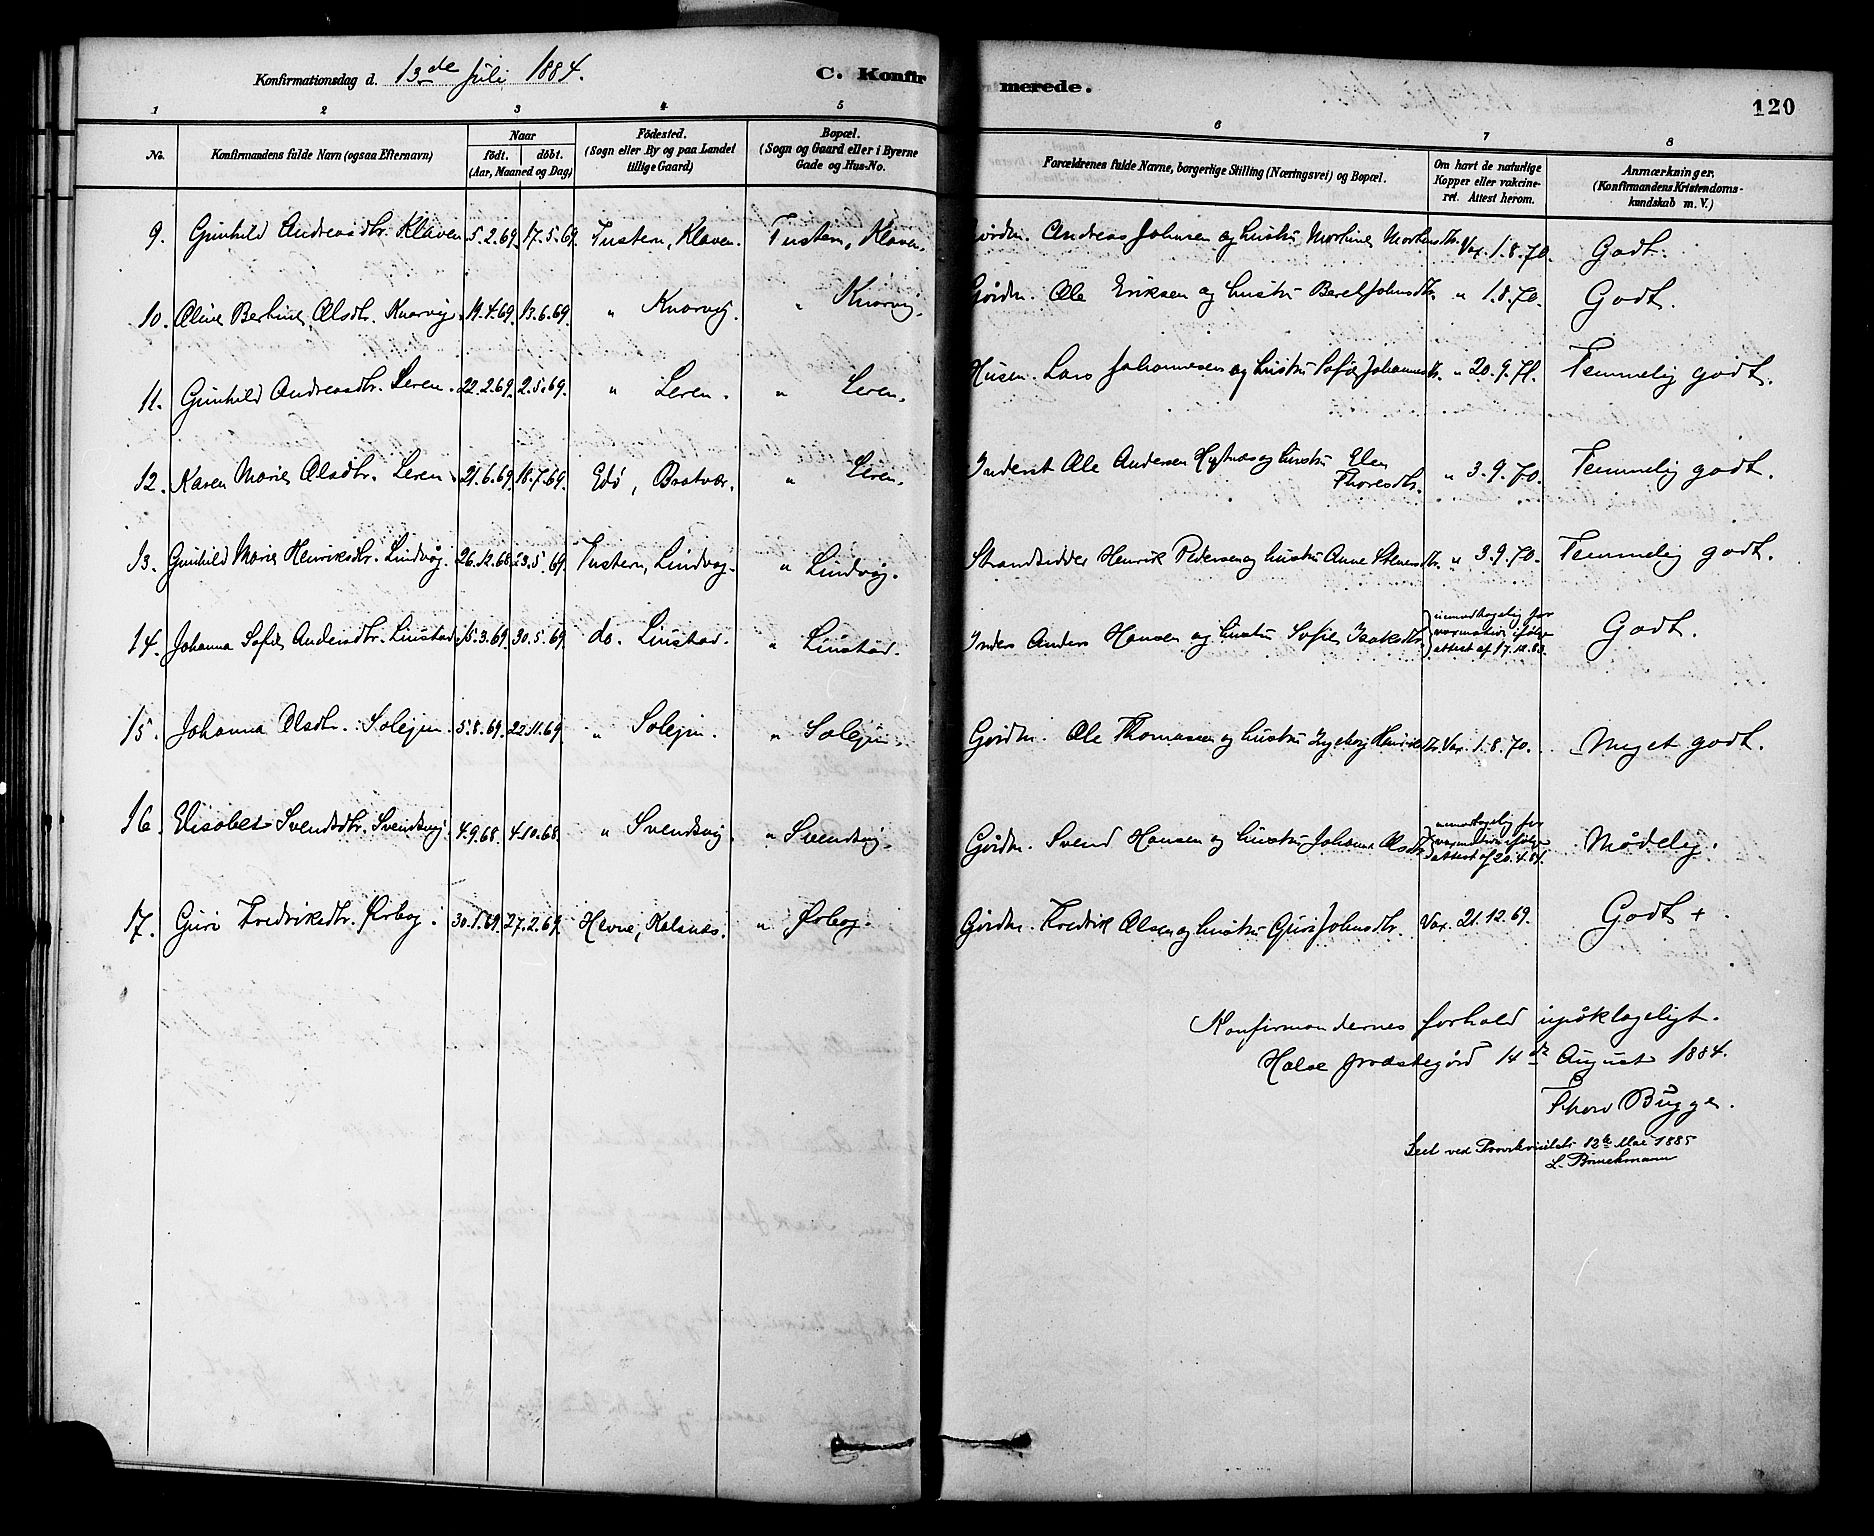 Konfirmationsdag d. 13de Juli 1884.
C. Konfir
merede.
120
1 2 3 4 5 6 7 8
No.
Konfirmandens fulde Navn (ogsaa Efternavn)
Naar
födt. döbt.
(Aar, Maaned og Dag)
Födested.
(Sogn eller By og paa Landet
tillige Gaard)
Bopæl.
(Sogn og Gaard eller i Byerne
Gade og Hus-No.
Forældrenes fulde Navne, borgerlige Stilling (Næringsvei) og Bopæl.
Om havt de naturlige
Kopper eller vakcine-
ret. Attest herom.
Anmærkninger.
(Konfirmandens Kristendoms-
kundskab m. V.)
9. Gunhild Andreasdtr. Klaven 5.2.69. 17.5.69. Tustern, Klaven. Tustern, Klaven. Gårdm. Andreas Johnsen og hustru Martine Mortensdtr. Vax. 1.8.70. Godt.
10. Oline Berhine Olsdtr. Knarvig. 19.4.69. 13.6.69. " Knarvig. " Knarvig. Gårdm. Ole Eriksen og hustru Beret Johnsdtr. " 1.8.70. Godt.
11. Gunhild Andreasdtr. Leren. 22.2.69. 2.5.69. " Leren. " Leren. Husm. Lars Johannesen og hustru Sofie Johannesdtr. " 20.9.71. Temmelig godt.
12. Karen Marie Olsdtr. Leren. 21.6.69. 18.7.69. Edø, Bratvær. " Leren. Inderst Ole Andersen Hyttnes og hustru Elen
Thoresdtr. " 3.9.70. Temmelig godt.
13. Gunhild Marie Henriksdtr. Lindvåg. 26.12.68. 23.5.69. Tustern, Lindvåg. " Lindvåg. Strandsidder Henrik Pedersen og hustru Anne Stenersdtr. " 3.9.70. Temmelig godt.
14. Johanna Sofie Andersdtr. Linstad. 15.3.69. 30.5.69. do. Linstad. " Linstad. Inders Anders Hansen og hustru Sofie Isaksdtr. uimodtagelig for
vaxination ifølge
attest af 17.12.83. Godt.
15. Johanna Olsdtr. Solejen. 5.8.69. 22.11.69. " Solejen. " Solejen. Gårdm. Ole Thomassen og hustru Ingeborg Henriksdtr. Vax. 1.8.70. Meget godt.
16. Elisabet Svendsdtr. Svendsvig. 4.9.68. 4.10.68. " Svendsvig. " Svendsvig. Gårdm. Svend Hansen og hustru Johanna Olsdtr. uimodtagelig for
vaxination ifølge
attest af 20.4.84. Mådelig.
17. Guri Fredriksdtr. Ørbog. 30.1.69. 27.2.69. Hevne, Kalsnes. " Ørbog. Gårdm. Fredrik Olsen og hustru Guri Johnsdtr. Vax. 21.12.69. Godt +.
Konfirmandernes forhold upåklageligt.
Halse prestegård 14de August 1884.
Thorv Bugge.
Seet ved Provstevisitats 12te Mai 1885
L. Brinchmann